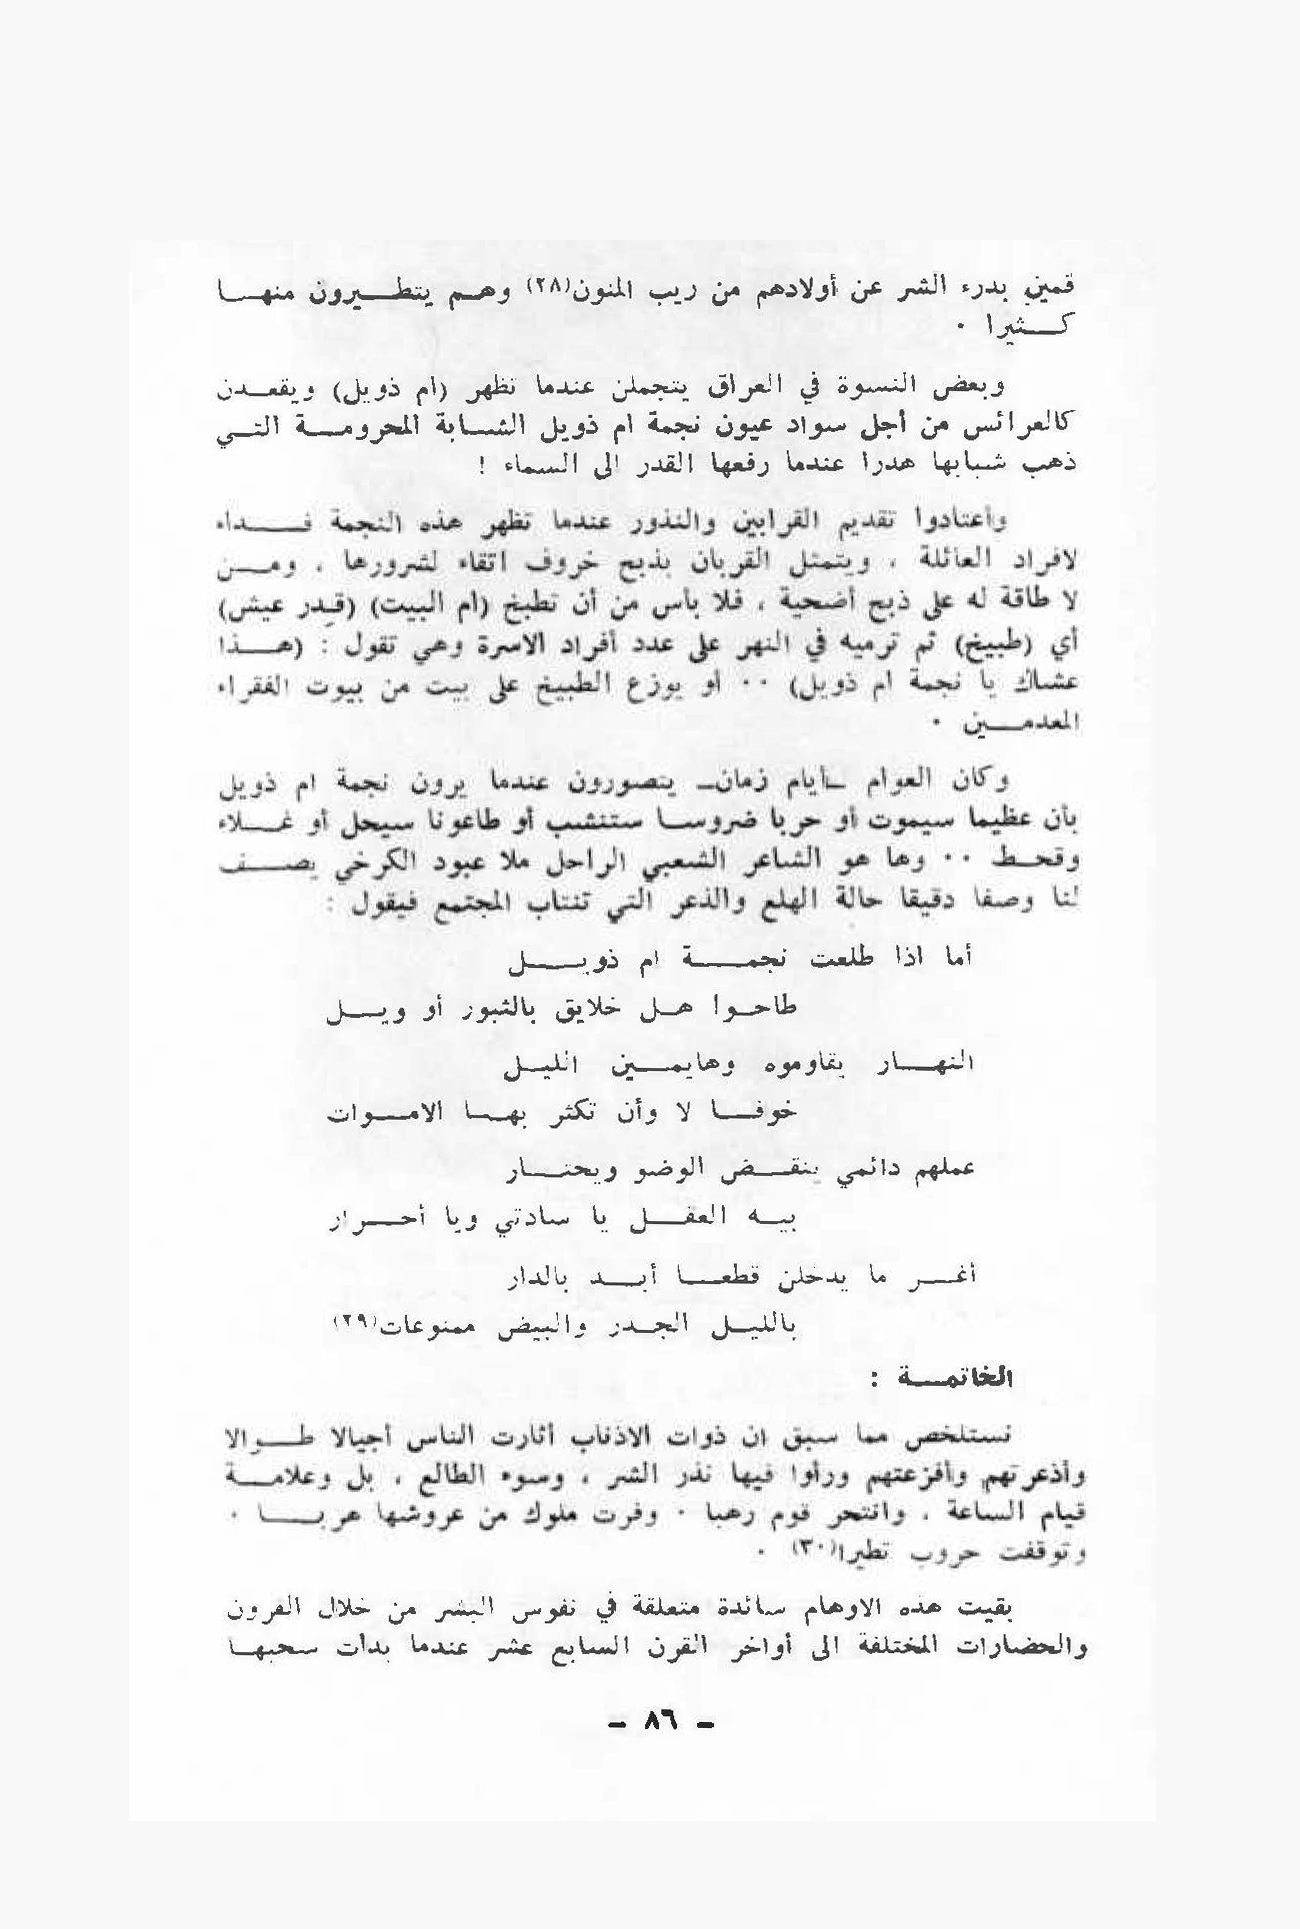 قمين بدرء الشر عن أولادهم من ريب المنون(٢٨) وهم يتطيرون منها
كثيرا .
وبعض النسوة في العراق يتجملن عندما تظهر (ام ذويل) ويقعدن
كالعرائس من أجل سواد عيون نجمة ام ذويل الشابة المحرومة التي
ذهب شبابها هدرا عندما رفعها القدر الى السماء !
وأعتادوا تقديم القرابين والنذور عندما تظهر هذه النجمة فداء
لافراد العائلة ، ويتمثل القربان بذبح خروف اتقاء لشرورها ، ومن
لا طاقة له على ذبح أضحية ، فلا بأس من أن تطبخ (ام البيت) (قدر عيش)
أي (طبيخ) ثم ترميه في النهر على عدد أفراد الاسرة وهي تقول : (هذا
عشاك يا نجمة ام ذويل) ٠٠ او يوزع الطبيخ على بيت من بيوت الفقراء
المعدمين .
وكان العوام ـأيام زمانـ يتصورون عندما يرون نجمة ام ذويل
بأن عظيما سيموت أو حربا ضروسا ستنشب أو طاعونا سيحل أو غلاء
وقحط ٠٠ وها هو الشاعر الشعبي الراحل ملا عبود الكرخي يصف
لنا وصفا دقيقا حالة الهلع والذعر التي تنتاب المجتمع فيقول :
أما اذا طلعت نجمة ام ذويل
طاحوا هل خلايق بالثبور أو ويل
النهار يقاوموه وهايمين الليل
خوفا لا وأن تكثر بهما الاموات
عملهم دائمي ينقض الوضو ويحتار
بيه العقل يا سادتي ويا أحرار
أغر ما يدخلن قطعا أبد بالدار
بالليل الجدر والبيض ممنوعات(٢٩)
الخاتمة :
نستلخص مما سبق ان ذوات الاذناب أثارت الناس أجيالا طوالا
وأذعرتهم وأفزعتهم ورأوا فيها نذر الشر ، وسوء الطالع ، بل وعلامة
قيام الساعة ، وانتحر قوم رهبا ٠ وفرت ملوك من عروشها هربا .
وتوقفت حروب تطيرا(٣٠) .
بقيت هذه الاوهام سائدة متعلقة في نفوس البشر من خلال القرون
والحضارات المختلفة الى أواخر القرن السابع عشر عندما بدأت سحبها
ـ ٨٦ ـ